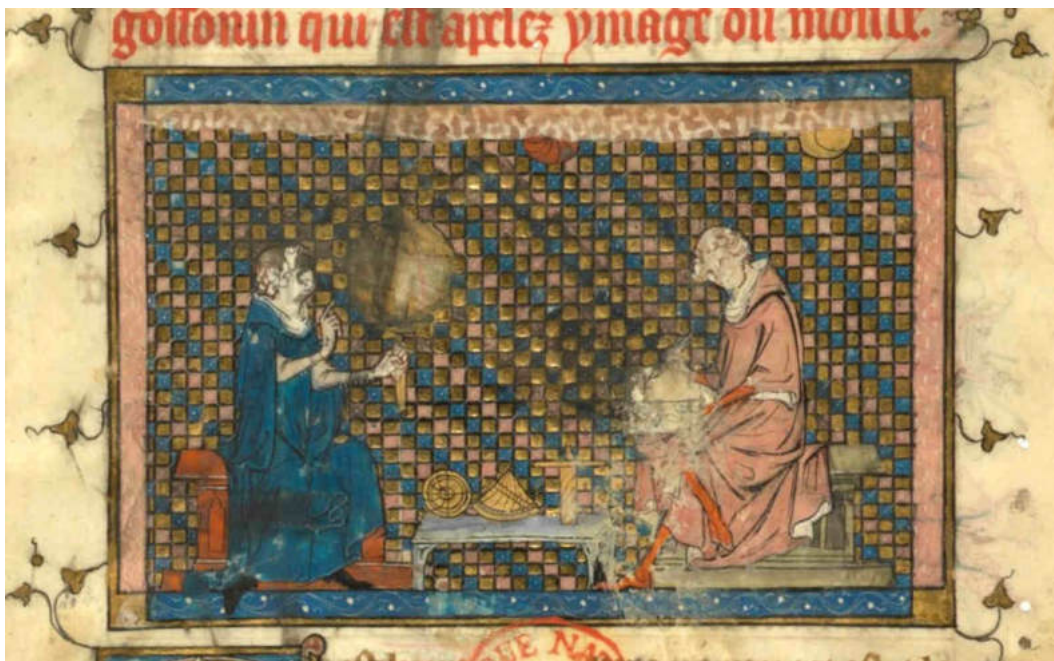 gossouin qui est apelez ymage du monde.
QUE NAT